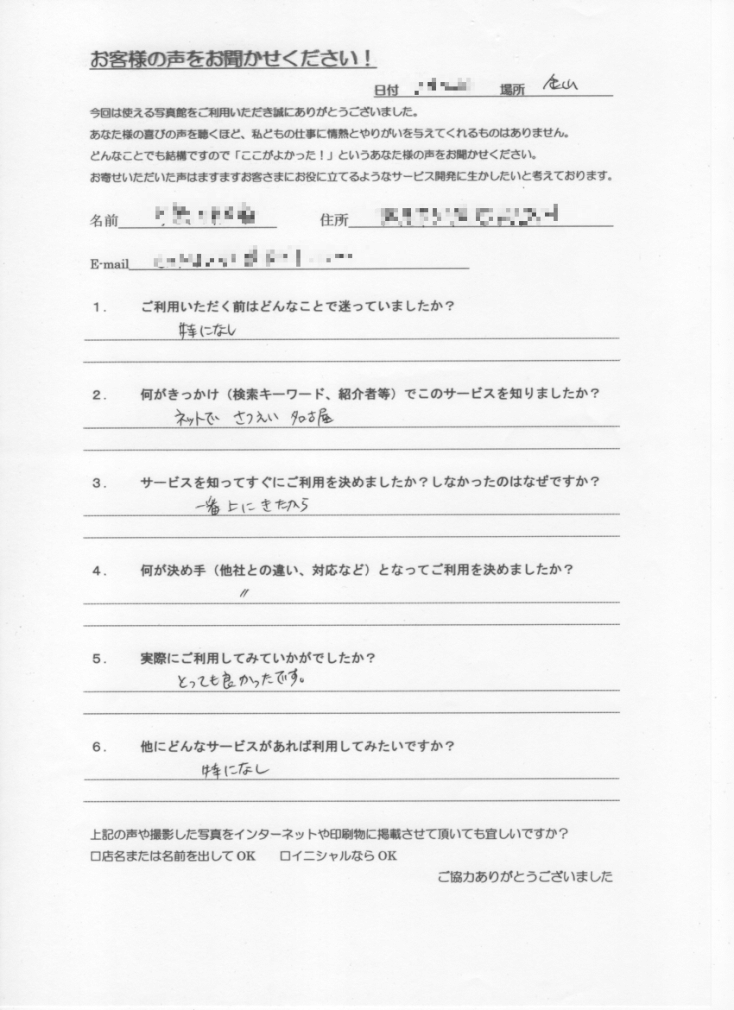 お客様の声をお聞かせください！
日付 場所 金山
今回は使える写真館をご利用いただき誠にありがとうございました。
あなた様の喜びの声を聴くほど、私どもの仕事に情熱とやりがいを与えてくれるものはありません。
どんなことでも結構ですので「ここがよかった！」というあなた様の声をお聞かせください。
お寄せいただいた声はますますお客さまにお役に立てるようなサービス開発に生かしたいと考えております。
名前 住所
E-mail
１． ご利用いただく前はどんなことで迷っていましたか？
特になし
２． 何がきっかけ（検索キーワード、紹介者等）でこのサービスを知りましたか？
ネットで さつえい 名古屋
３． サービスを知ってすぐにご利用を決めましたか？しなかったのはなぜですか？
一番上にきたから
４． 何が決め手（他社との違い、対応など）となってご利用を決めましたか？
〃
５． 実際にご利用してみていかがでしたか？
とっても良かったです。
６． 他にどんなサービスがあれば利用してみたいですか？
特になし
上記の声や撮影した写真をインターネットや印刷物に掲載させて頂いても宜しいですか？
□店名または名前を出して OK □イニシャルなら OK
ご協力ありがとうございました